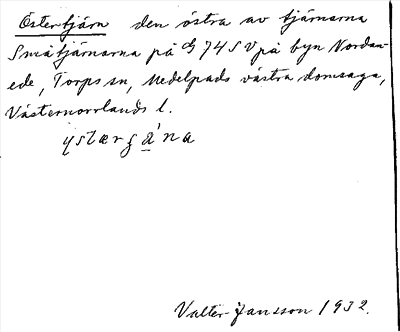 Östertjärn den östra av tjärnarna
Småtjärnarna på 74 SV på byn Nordan-
ede, Torps sn, Medelpads västra domsaga,
Västernorrlands l.
ystærgána
Valter Jansson 1932.